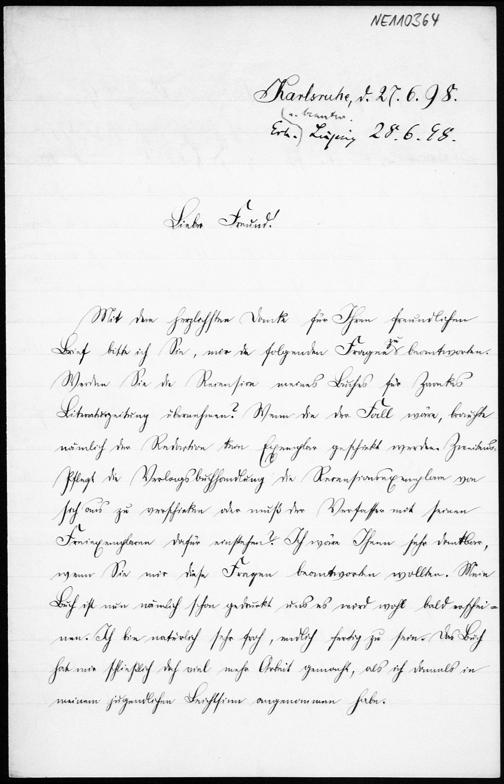 NE110364
Karlsruhe, d. 27. 6. 98.
u. beantw.
Erh. Leipzig 28. 6. 98.
Lieber Freund!
Mit dem herzlichsten Danke für Ihren freundlichen
Brief bitte ich Sie, mir die folgenden Fragen zu beantworten.
Werden Sie die Recension meines Buches für Zarnckes
Literaturzeitung übernehmen? Wenn dies der Fall wäre, brauchte
nämlich der Redaktion kein Exemplar geschickt werden. Zweitens:
Pflegt die Verlagsbuchhandlung die Recensionsexemplare von
sich aus zu verschicken oder muß der Verfasser mit seinen
Freiexemplaren dafür einstehen? Ich wäre Ihnen sehr dankbar,
wenn Sie mir diese Fragen beantworten wollten. Mein
Buch ist nun nämlich schon gedruckt und es wird wohl bald erschei-
nen. Ich bin natürlich sehr froh, endlich fertig zu sein. Das Buch
hat mir schließlich doch viel mehr Arbeit gemacht, als ich damals in
meinem jugendlichen Leichtsinn angenommen habe.